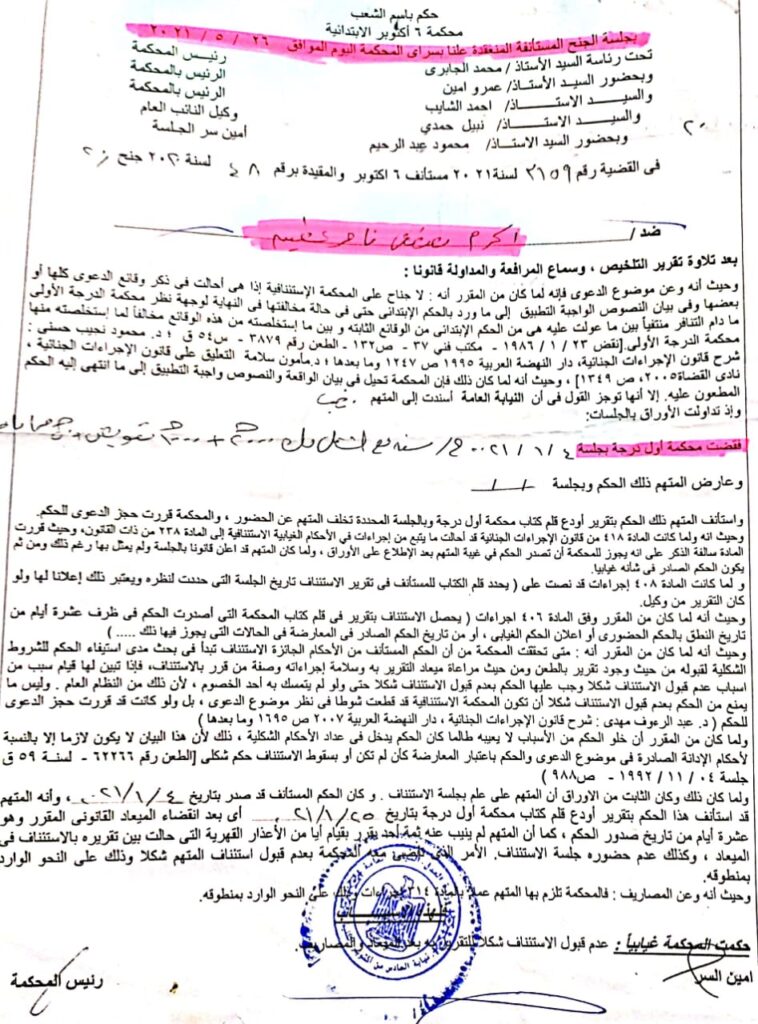 حكم باسم الشعب
محكمة ٦ أكتوبر الابتدائية
بجلسة الجنح المستأنفة المنعقدة علنا بسراى المحكمة اليوم الموافق ٢٦ / ٥ / ٢٠٢١
تحت رئاسة السيد الأستاذ / محمد الجابرى رئيس المحكمة
وبحضور السيد الأستاذ/ عمرو امين الرئيس بالمحكمة
والسيد الاستاذ/ احمد الشايب الرئيس بالمحكمة
والسيد الاستاذ/ نبيل حمدي وكيل النائب العام
وبحضور السيد الاستاذ/ محمود عبد الرحيم أمين سر الجلسة
فى القضية رقم ٣١٥٩ لسنة ٢٠٢١ مستأنف ٦ اكتوبر والمقيدة برقم ٤٨ لسنة ٢٠٢٠ جنح
ضد / اكرم
بعد تلاوة تقرير التلخيص ، وسماع المرافعة والمداولة قانونا :
وحيث أنه وعن موضوع الدعوى فإنه لما كان من المقرر أنه : لا جناح على المحكمة الإستئنافية إذا هى أحالت فى ذكر وقائع الدعوى كلها أو
بعضها وفى بيان النصوص الواجبة التطبيق إلى ما ورد بالحكم الإبتدائى حتى فى حالة مخالفتها فى النهاية لوجهة نظر محكمة الدرجة الأولى
ما دام التنافر منتفياً بين ما عولت عليه هى من الحكم الإبتدائى من الوقائع الثابته و بين ما إستخلصته من هذه الوقائع مخالفاً لما إستخلصته منها
محكمة الدرجة الأولى.[نقض ٢٣ / ١ / ١٩٨٦ - مكتب فني ٣٧ - ص١٣٢ - الطعن رقم ٣٨٧٩ - س٥٤ ق ؛ د. محمود نجيب حسنى :
شرح قانون الإجراءات الجنائية، دار النهضة العربية ١٩٩٥ ص ١٢٤٧ وما بعدها ؛ د.مأمون سلامة التعليق على قانون الإجراءات الجنائية ،
نادى القضاة٢٠٠٥، ص ١٣٤٩] ، وحيث أنه لما كان ذلك فإن المحكمة تحيل فى بيان الواقعة والنصوص واجبة التطبيق إلى ما انتهى إليه الحكم
المطعون عليه. إلا أنها توجز القول فى أن النيابة العامة أسندت إلى المتهم
وإذ تداولت الأوراق بالجلسات:
فقضت محكمة أول درجة بجلسة ٤ / ١ / ٢٠٢١ سنة مع الشغل
وعارض المتهم ذلك الحكم وبجلسة / /
واستأنف المتهم ذلك الحكم بتقرير أودع قلم كتاب محكمة أول درجة وبالجلسة المحددة تخلف المتهم عن الحضور ، والمحكمة قررت حجز الدعوى للحكم.
وحيث انه ولما كانت المادة ٤١٨ من قانون الإجراءات الجنائية قد أحالت ما يتبع من إجراءات في الأحكام الغيابية الاستئنافية إلى المادة ٢٣٨ من ذات القانون، وحيث قررت
المادة سالفة الذكر على انه يجوز للمحكمة أن تصدر الحكم في غيبة المتهم بعد الإطلاع على الأوراق ، ولما كان المتهم قد اعلن قانونا بالجلسة ولم يمثل بها رغم ذلك ومن ثم
يكون الحكم الصادر فى شأنه غيابيا.
و لما كانت المادة ٤٠٨ إجراءات قد نصت على ( يحدد قلم الكتاب للمستأنف فى تقرير الاستئناف تاريخ الجلسة التى حددت لنظره ويعتبر ذلك إعلانا لها ولو
كان التقرير من وكيل.
وحيث أنه لما كان من المقرر وفق المادة ٤٠٦ اجراءات ( يحصل الاستئناف بتقرير فى قلم كتاب المحكمة التى أصدرت الحكم فى ظرف عشرة أيام من
تاريخ النطق بالحكم الحضورى أو اعلان الحكم الغيابى ، أو من تاريخ الحكم الصادر فى المعارضة فى الحالات التى يجوز فيها ذلك ..... )
وحيث أنه لما كان من المقرر أنه : متى تحققت المحكمة من أن الحكم المستأنف من الأحكام الجائزة الاستئناف تبدأ فى بحث مدى استيفاء الحكم للشروط
الشكلية لقبوله من حيث وجود تقرير بالطعن ومن حيث مراعاة ميعاد التقرير به وسلامة إجراءاته وصفة من قرر بالاستئناف، فإذا تبين لها قيام سبب من
اسباب عدم قبول الاستئناف شكلا وجب عليها الحكم بعدم قبول الاستئناف شكلا حتى ولو لم يتمسك به أحد الخصوم ، لأن ذلك من النظام العام . وليس ما
يمنع من الحكم بعدم قبول الاستئناف شكلا أن تكون المحكمة الاستئنافية قد قطعت شوطا فى نظر موضوع الدعوى ، بل ولو كانت قد قررت حجز الدعوى
للحكم ( د. عبد الرءوف مهدى : شرح قانون الإجراءات الجنائية ، دار النهضة العربية ٢٠٠٧ ص ١٦٩٥ وما بعدها )
ولما كان من المقرر أن خلو الحكم من الأسباب لا يعيبه طالما كان الحكم يدخل فى عداد الأحكام الشكلية ، ذلك لأن هذا البيان لا يكون لازما إلا بالنسبة
لأحكام الإدانة الصادرة فى موضوع الدعوى والحكم باعتبار المعارضة كأن لم تكن أو بسقوط الاستئناف حكم شكلى [الطعن رقم ٦٢٢٦٦ - لسنة ٥٩ ق
جلسة ٠٤ / ١١ / ١٩٩٢ - ص٩٨٨ )
ولما كان ذلك وكان الثابت من الاوراق أن المتهم على علم بجلسة الاستئناف . و كان الحكم المستأنف قد صدر بتاريخ ٤ / ١ / ٢٠٢١ ، وأنه المتهم
قد استأنف هذا الحكم بتقرير أودع قلم كتاب محكمة أول درجة بتاريخ ٢٥ / ١ / ٢٠٢١ أى بعد انقضاء الميعاد القانونى المقرر وهو
عشرة أيام من تاريخ صدور الحكم ، كما أن المتهم لم ينيب عنه ثمة أحد يقرر بقيام أيا من الأعذار القهرية التى حالت بين تقريره بالاستئناف فى
الميعاد ، وكذلك عدم حضوره جلسة الاستئناف. الأمر الذى تقضى معه المحكمة بعدم قبول استئناف المتهم شكلا وذلك على النحو الوارد
بمنطوقه.
وحيث أنه وعن المصاريف : فالمحكمة تلزم بها المتهم عملا بالمادة ٣١٤ إجراءات وذلك على النحو الوارد بمنطوقه.
حكمت المحكمة غيابياً : عدم قبول الاستئناف شكلا للتقرير به بعد الميعاد والمصاريف.
امين السر رئيس المحكمة